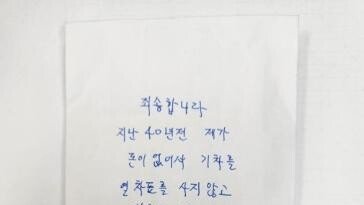 죄송합니다
지난 40년전 제가
돈이 없어서 기차를
열차표를 사지 않고